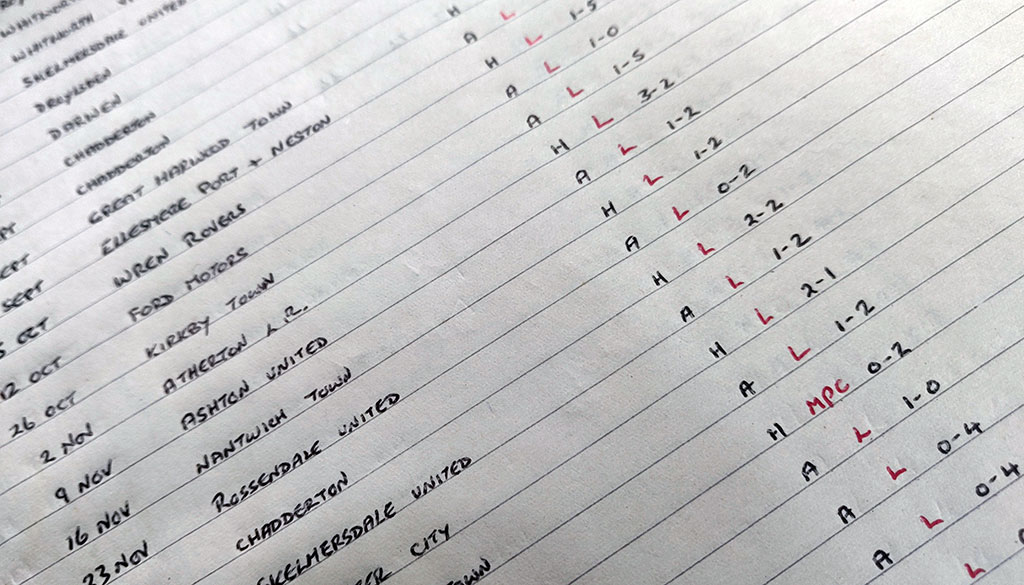 WHITWORTH
SKELMERSDALE UNITED
DROYLSDEN
DARWEN
CHADDERTON H
CHADDERTON A L
GREAT HARWOOD TOWN H L 1-5
SEPT ELLESMERE PORT + NESTON A L 1-0
5 OCT WREN ROVERS A L 1-5
12 OCT FORD MOTORS H L 3-2
26 OCT KIRKBY TOWN A L 1-2
2 NOV ATHERTON L.R. H L 1-2
9 NOV ASHTON UNITED A L 0-2
16 NOV NANTWICH TOWN H L 2-2
23 NOV ROSSENDALE UNITED A L 1-2
CHADDERTON H L 2-1
SKELMERSDALE UNITED A L 1-2
CITY H MPC 0-2
A L 1-0
A L 0-4
A L 0-4
L